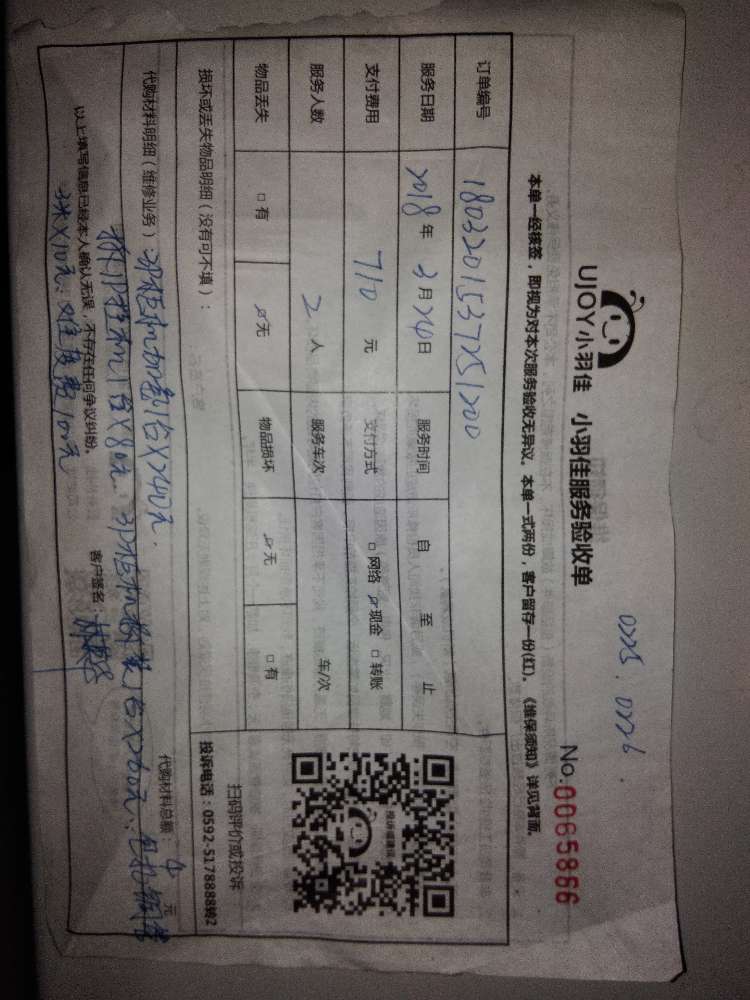 0225. 0226.
UJOY小羽佳 小羽佳服务验收单
No.0065866
本单一经核签，即视为对本次服务验收无异议。本单一式两份，客户留存一份(红)。《维保须知》详见背面。
订单编号 1803201537251200
服务日期 2018年3月20日 服务时间 自 至 止
支付费用 710元 支付方式 □网络 ☑现金 □转账
服务人数 2人 服务车次 车/次
物品丢失 □有 ☑无 物品损坏 ☑无 □有
损坏或丢失物品明细（没有可不填）：
扫码评价或投诉
投诉电话：0592-5178888转2
代购材料明细（维修业务）：3P柜机加氟1台X240元.
代购材料总额： 元
拆1P挂机1台X80元. 3P柜机 1台X260元.
3米X10元. 难度费100元
以上填写信息已经本人确认无误，不存在任何争议纠纷。
客户签名：